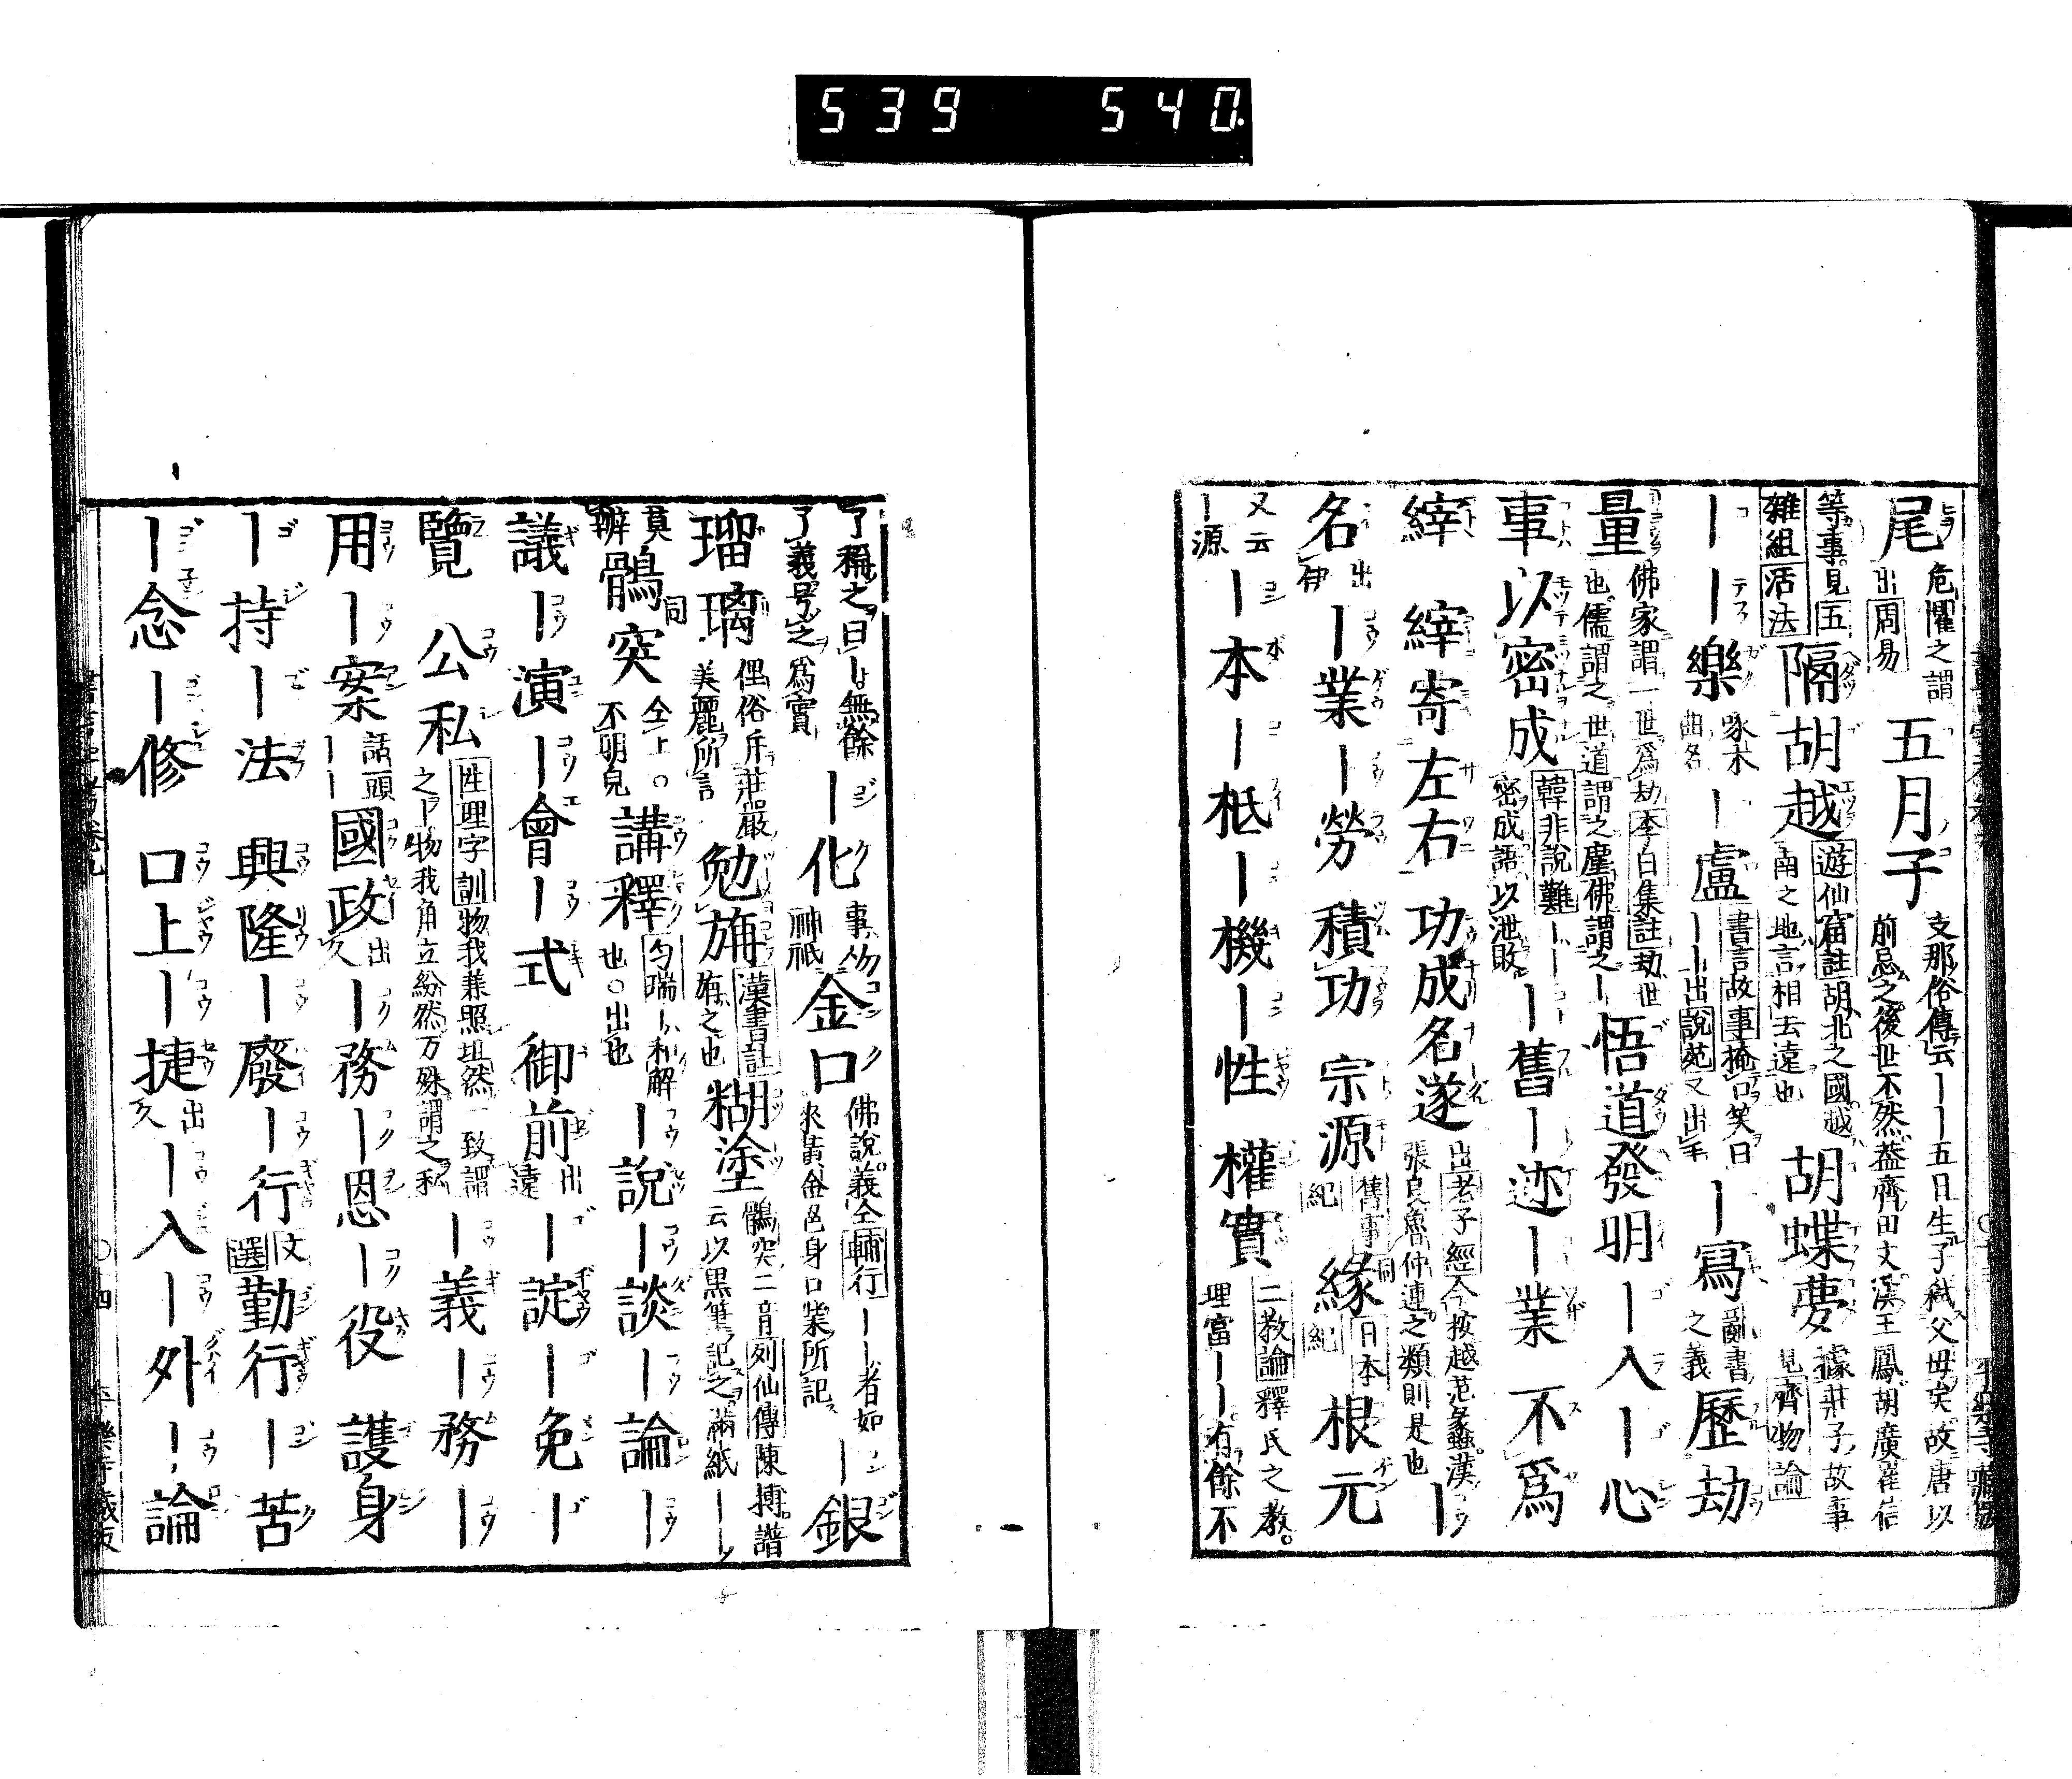 539 540
尾 危懼之謂 出周易 五月子 支那俗傳云――五日生子弑父母矣故唐以前忌之後世不然蓋齊田文漢王鳳胡廣崔信
等事見五雜組活法 隔胡越 遊仙窟註胡北之國越南之地言相去遠也 胡蝶夢 據莊子故事見齊物論
――樂 啄木曲名 ―盧 書言故事掩口笑曰――出說苑又出 ―寫 亂書之義 歷劫
量 佛家謂一世爲劫李白集註劫世也儒謂之世道謂之塵佛謂之― 悟道發明―入―心
事以密成 韓非說難―以密成語以泄敗 ―舊―迹―業 不爲
縡 縡寄左右 功成名遂 出老子經今按越范蠡漢張良魯仲連之類則是也 ―
名 出伊 ―業―勞 積功 宗源 舊事紀 緣 同日本紀 根元
又云―源 ―本―柢―機―性 權實 二教論釋氏之教理富――有餘不
了稱之曰―無餘了義号之爲實 ―化 事物神祇 金口 佛說義仝輔行――者如來黃金色身口業所記 ―銀
瑠璃 俚俗斥莊嚴美麗所言 勉旃 漢書註旃之也 糊塗 鶻突二音列仙傳陳摶譜云以黒筆記之滿紙――
貰辨 鶻突 同仝上○不明皃 講釋 匀瑞―和解也○出也 ―說―談―論―
議―演―會―式 御前 出遠 ―諚―免―
覽 公私 性理字訓物我兼照坦然一致謂之―物我角立紛然万殊謂之私 ―義―務―
用―案 話頭―― 國政 出久 ―務―恩―役 護身
―持―法 興隆―廢―行 文選 勤行―苦
―念―修 口上―捷 出久 ―入―外―論